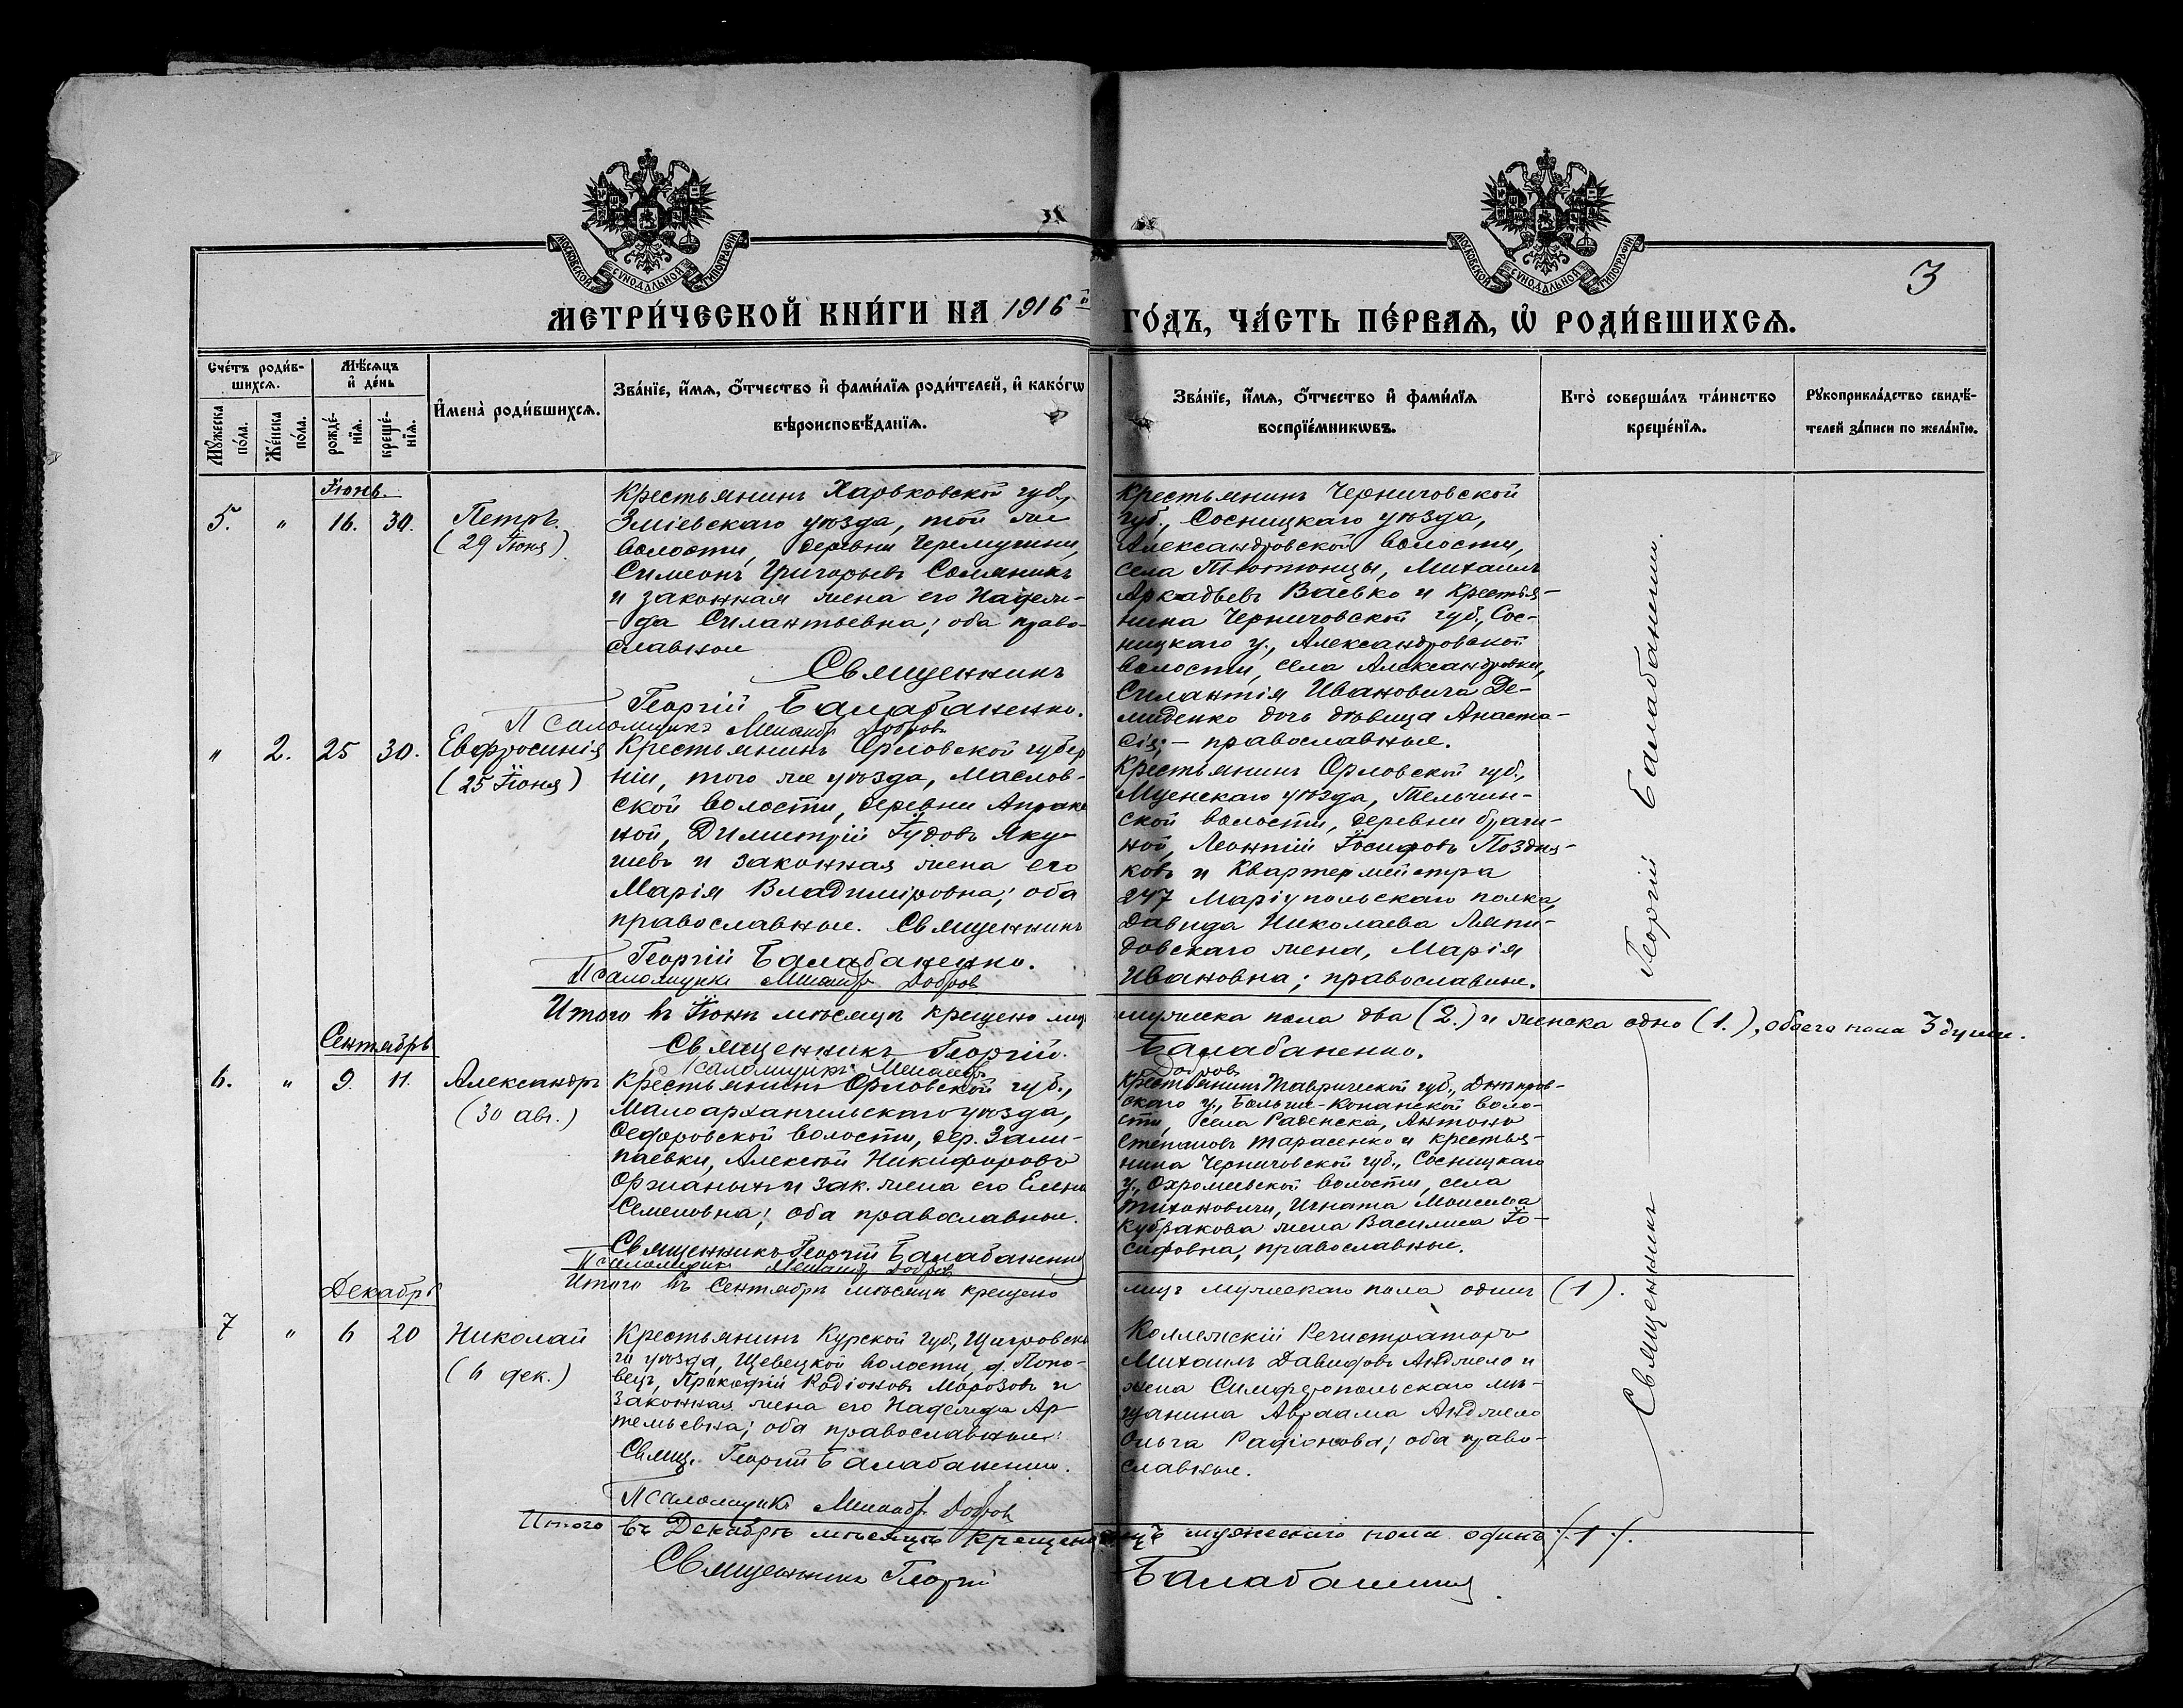 3
МОСКОВСКОЙ СѴНОДАЛЬНОЙ ТИПОГРАФІИ
МОСКОВСКОЙ СѴНОДАЛЬНОЙ ТИПОГРАФІИ
МЕТРИ́ЧЕСКОЙ КНИ́ГИ НА 1916й ГО́ДЪ, ЧА́СТЬ ПЕ́РВАѦ, Ѡ҆ РОДИ́ВШИХСѦ.
Счётъ роди́в-
шихсѧ.
Мѹ́жеска по́ла.
Же́нска по́ла.
Мѣ́сѧцъ
и҆ де́нь
рожде́-
нїѧ.
креще́-
нїѧ.
И҆мена̀ роди́вшихсѧ.
Зва́нїе, и҆́мѧ, ѻ҆́тчество и҆ фами́лїѧ роди́телей, и҆ како́гѡ
вѣроисповѣ́данїѧ.
Зва́нїе, и҆́мѧ, ѻ҆́тчество и҆ фами́лїѧ
воспрїе́мникѡвъ.
Кто̀ соверша́лъ та́инство
креще́нїѧ.
Рѹкоприкла́дство свидѣ́-
телей за́писи по жела́нїю.
Іюнь.
5. " 16. 30. Петръ.
(29 Іюня)
Крестьянинъ Харьковской губ.,
Зміевскаго уѣзда, той же
волости, деревни Черемушни,
Симеонъ Григорьевъ Соляникъ
и законная жена его Надеж-
-да Силантьевна; оба право-
славные
Священникъ
Георгій Балабаненко.
Псаломщикъ Менандръ Добровъ
Крестьянинъ Черниговской
губ., Сосницкаго уѣзда,
Александровской волости,
села Тютюницы, Михаилъ
Аркадьевъ Ваевко и Крестья-
нина Черниговской губ., Сос-
ницкаго у., Александровской
волости, села Александровки,
Силантія Ивановича Де-
миденко дочь дѣвица Анаста-
сія; – православные.
" 2. 25 30. Евфросинія
(25 Іюня)
Крестьянинъ Орловской губер
ніи, того же уѣзда, Маслов-
ской волости, деревни
ной, Димитрій Іудовъ Яку-
шевъ и законная жена его
Марія Владиміровна; оба
православные. Священникъ
Георгій Балабаненко.
Псаломщикъ Менандръ Добровъ
Крестьянинъ Орловской губ.,
Мценскаго уѣзда, Тельчин-
ской волости, деревни
ной, Леонтій Іосифовъ Поздня-
ковъ и Квартермейстра
247 Маріупольскаго полка,
Давида Николаева
довскаго жена, Марія
Ивановна; православные.
Итого въ Іюнѣ мѣсяцѣ крещено муж
мужеска пола два (2.) и женска одно (1.), обоего пола 3 души.
Священникъ Георгій Балабаненко.
Псаломщикъ Менандръ Добровъ
Сентябрь
6. " 9. 11. Александръ
(30 авг.)
Крестьянинъ Орловской губ.,
Малоархангельскаго уѣзда,
Ѳедоровской волости, дер. Зали-
паевки, Алексѣй Никифоровъ
и зак. жена его Елена
Семеновна; оба православные.
Священникъ Георгій Балабаненко
Псаломщикъ Менандръ Добровъ
Крестьянинъ Таврической губ., Днѣпров-
скаго у., Больше-Копанской воло-
сти, села Раденска, Антонъ
Степановъ Тарасенко и крестья-
нина Черниговской губ., Сосницкаго
у., Охромѣевской волости, села
Тихоновичи, Игната Моисеева
Кубракова жена Василиса Іо-
сифовна, православные.
Итого въ Сентябрѣ мѣсяцѣ крещено
лицъ мужескаго пола одинъ (1).
Декабрь
7 " 6 20 Николай
(6 дек.)
Крестьянинъ Курской Губ., Щигровска
го уѣзда, волости, д. Попо-
вецъ, Прокофій Родіоновъ Морозовъ и
законная жена его Надежда Ар-
темьевна; оба православные.
Свящ. Георгій Балабаненко.
Псаломщикъ Менандръ Добровъ
Коллежскій Регистраторъ
Михаилъ Давидовъ Анджело и
жена Симферопольскаго мѣ-
щанина Авраама Анджело
Ольга; оба право-
славные.
Итого въ Декабрѣ мѣсяцѣ крещено лицъ мужескаго пола одинъ /.1./.
Священникъ Георгій Балабаненко.
Священникъ Георгій Балабаненко.